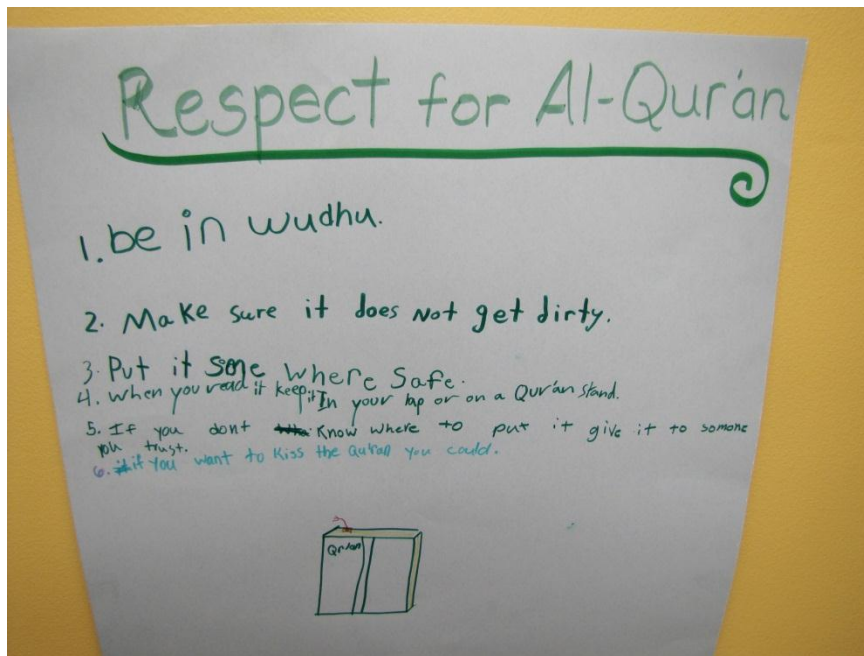 Respect for Al-Qur'an
1. be in wudhu.
2. Make sure it does Not get dirty.
3. Put it some where Safe.
4. when you read it keep it In your lap or on a Qur'an stand.
5. If you dont Know where to put it give it to somone
you trust.
6. if You want to Kiss the Qur'an you could.